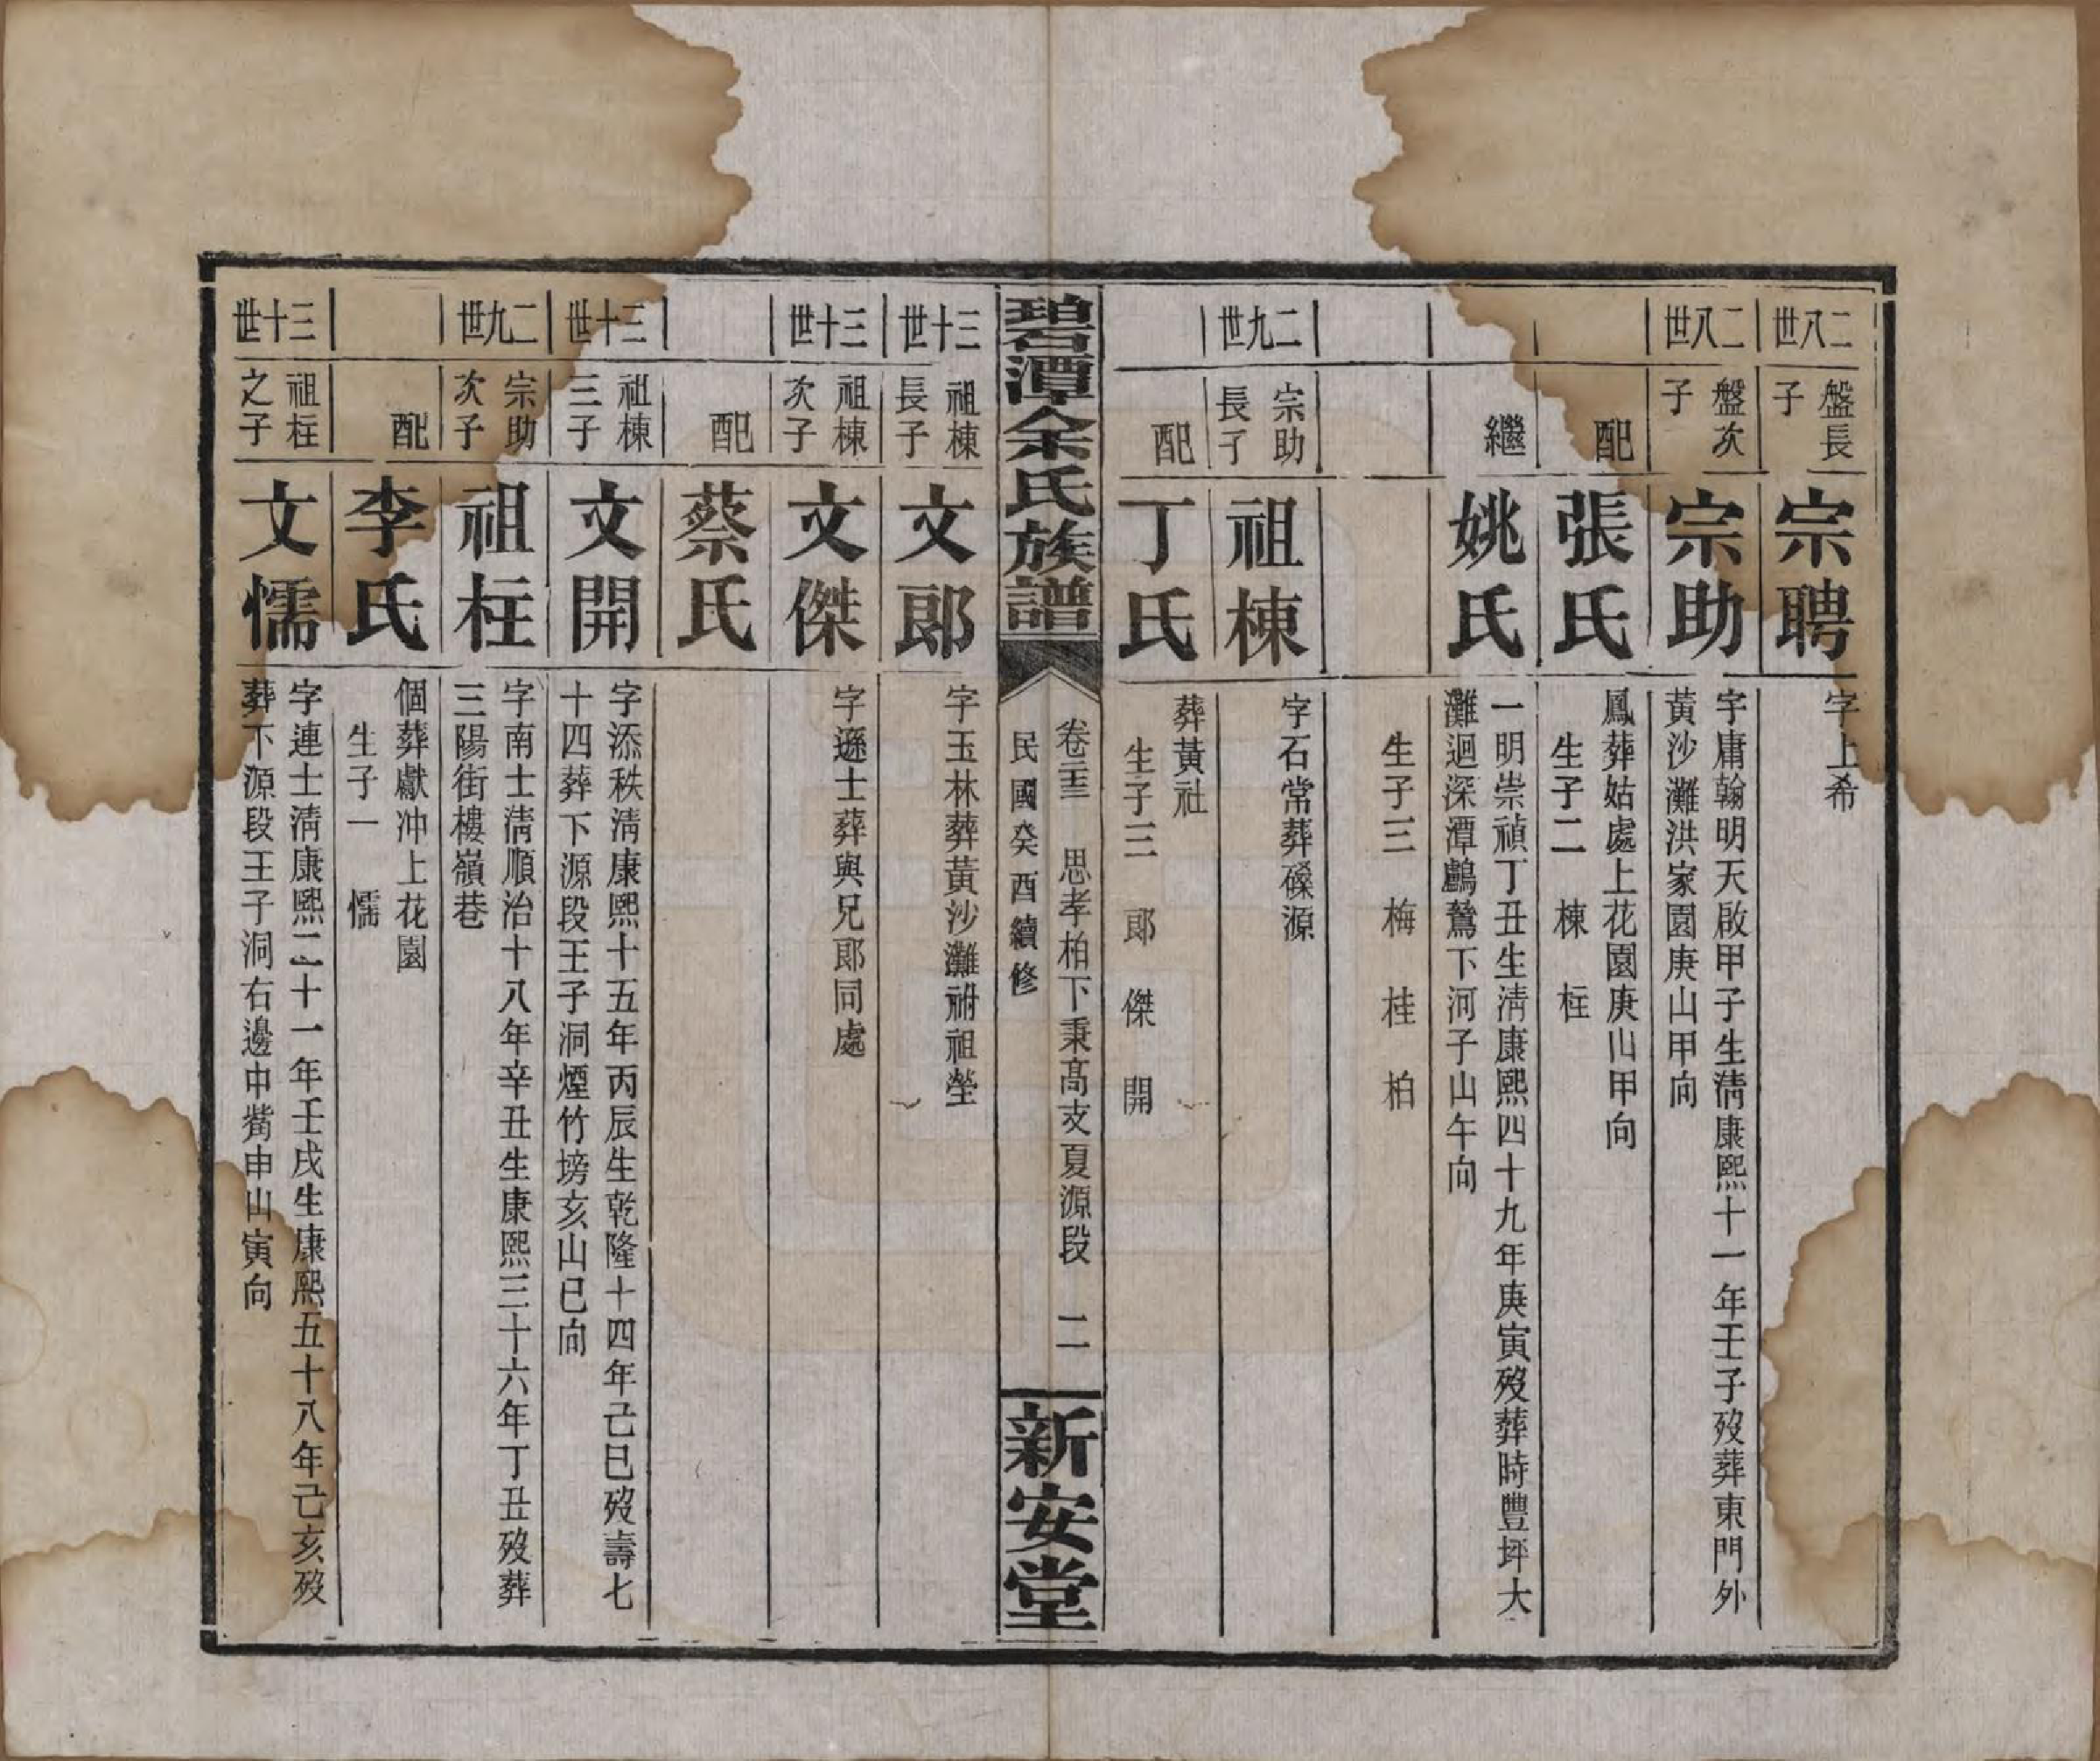 二八世
盤長子
宗聘
字上希
二八世
盤次子
宗助
字庸翰明天啟甲子生淸康熙十一年壬子歿葬東門外
黃沙灘洪家園庚山甲向
配
張氏
鳳葬姑處上花園庚山甲向
生子二 棟 柱
繼
姚氏
一明崇禎丁丑生淸康熙四十九年庚寅歿葬時豐坪大
灘迴深潭鸕鶿下河子山午向
生子三 梅 桂 柏
二九世
宗助長子
祖棟
字石常葬磉源
配
丁氏
葬黃社
生子三 郎 傑 開
碧潭余氏族譜
卷三 思孝柏下秉髙支夏源段 二
民國癸酉續修
新安堂
三十世
祖棟長子
文郎
字玉林葬黃沙灘祔祖塋
三十世
祖棟次子
文傑
字遜士葬與兄郎同處
配
蔡氏
三十世
祖棟三子
文開
字添秩淸康熙十五年丙辰生乾隆十四年己巳歿壽七
十四葬下源段王子洞煙竹塝亥山巳向
二九世
宗助次子
祖柱
字南士淸順治十八年辛丑生康熙三十六年丁丑歿葬
三陽街樓嶺巷
配
李氏
個葬獻冲上花園
生子一 懦
三十世
祖柱之子
文懦
字連士淸康熙二十一年壬戌生康熙五十八年己亥歿
葬下源段王子洞右邊中嘴申山寅向